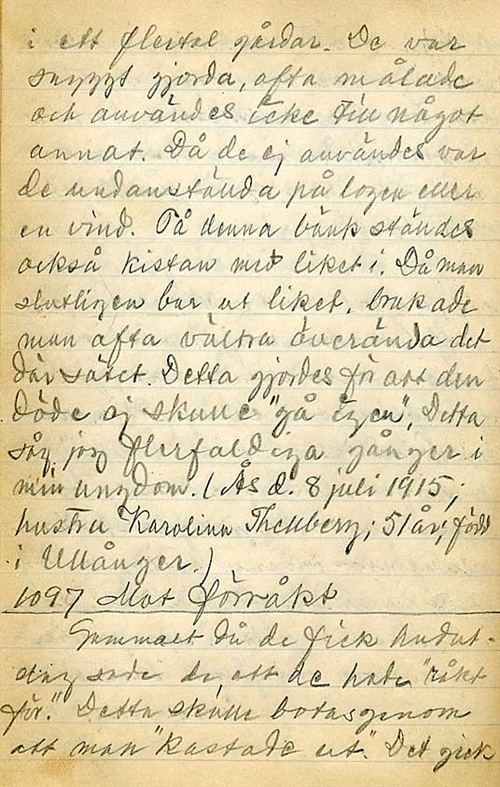 i ett flertal gårdar. De var
snyggt gjorda, ofta målade
och användes icke till något
annat. Då de ej användes var
de undanstända på logen eller
en vind. På denna bänk ständes
också kistan med liket i. Då man
slutligen bar ut liket, brukade
man ofta vältra överända det
där sätet. Detta gjordes för att den
döde ej skulle "gå igen". Detta
såg jag flerfaldiga gånger i
min ungdom. (Ås d. 8 juli 1915;
hustru Karolina Thellberg; 51 år; född
i Ullånger.)
1097 Mot förråkt
Gammalt då de fick hudut-
slag sade de att de hade "råkt
för." Detta skulle botas genom
att man "kastade ut". Det gick